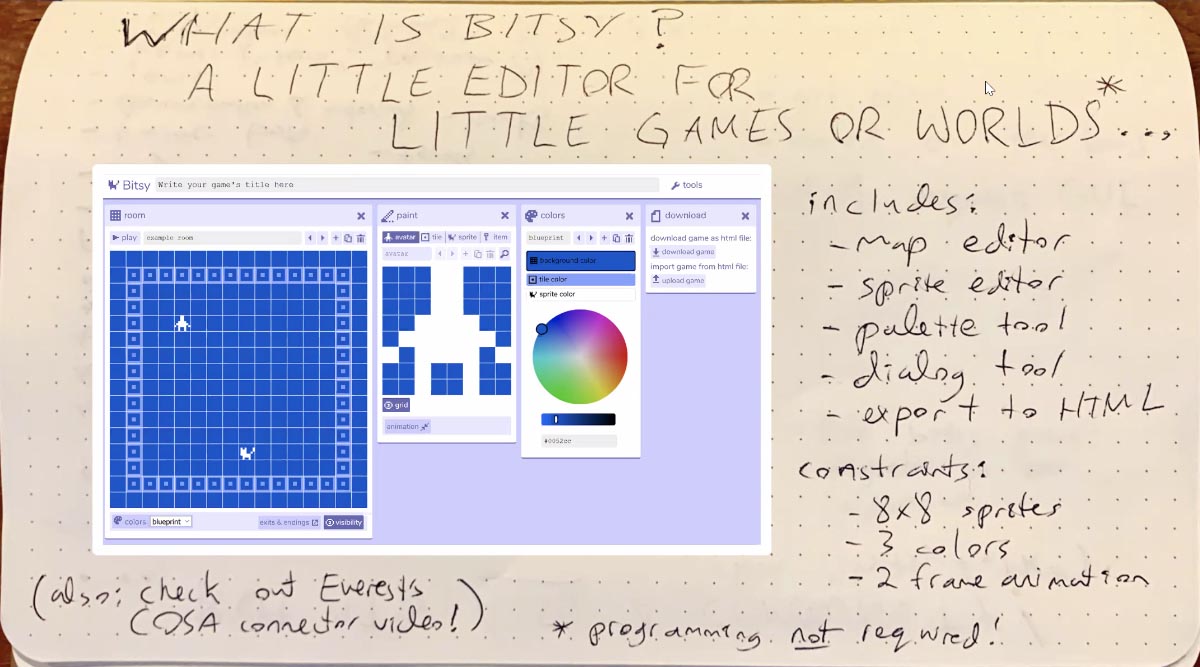 WHAT IS BITSY?
A LITTLE EDITOR FOR
LITTLE GAMES OR WORLDS*...,
Bitsy
Write your game's title here
tools
room
play
example room
colors
blueprint
exits & endings
visibility
paint
avatar
tile
sprite
item
avatar
grid
animation
colors
blueprint
background color
tile color
sprite color
#0052cc
download
download game as html file:
download game
import game from html file:
upload game
includes:
- map editor
- sprite editor
- palette tool
- dialog tool
- export to HTML
constraints:
- 8x8 sprites
- 3 colors
- 2 frame animation
(also: check out Everest's
COSA connector video!)
* programming not required!